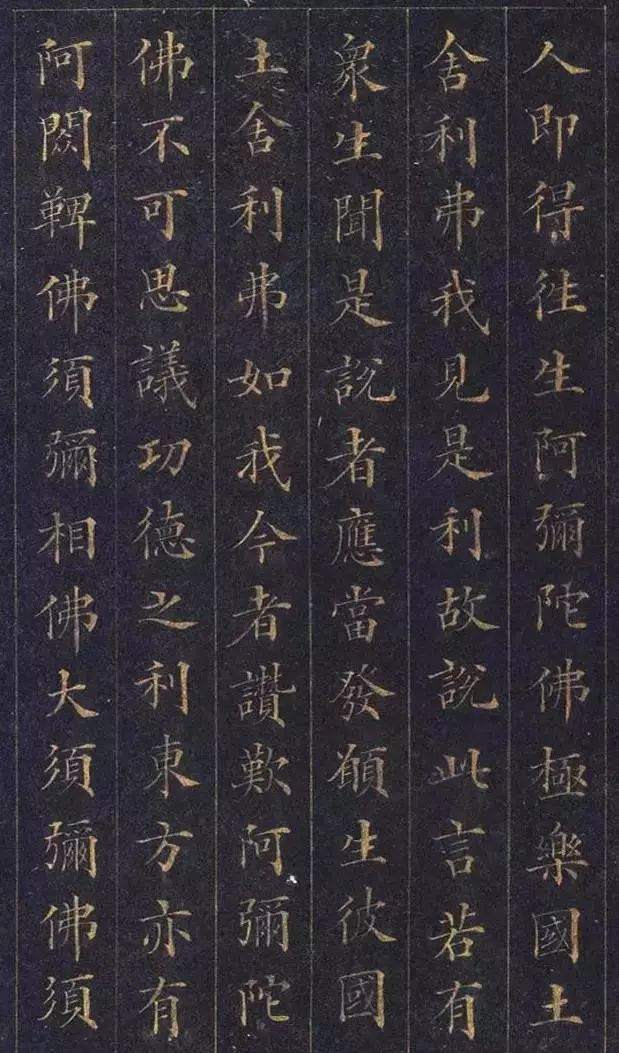 人即得往生阿彌陀佛極樂國土
舍利弗我見是利故說此言若有
衆生聞是說者應當發願生彼國
土舍利弗如我今者讚歎阿彌陀
佛不可思議功德之利東方亦有
阿閦鞞佛須彌相佛大須彌佛須